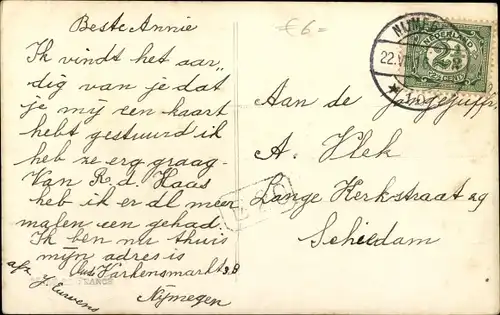 Beste Annie
Ik vindt het aar„
dig van je dat
je mij een kaart
hebt gestuurd ik
heb ze erg graag-
Van R. d. Haas
heb ik er al meer
malen een gehad.
Ik ben nu thuis
mijn adres is
Oud Varkensmarkt
Nijmegen
afz J. Euwens
FRANCE
€6=
NIJMEG
22.VI
NEDERLAND
2½
CENT
Aan de Jongejuffr.
A. Vlek
Lange Kerkstraat 29
Schiedam